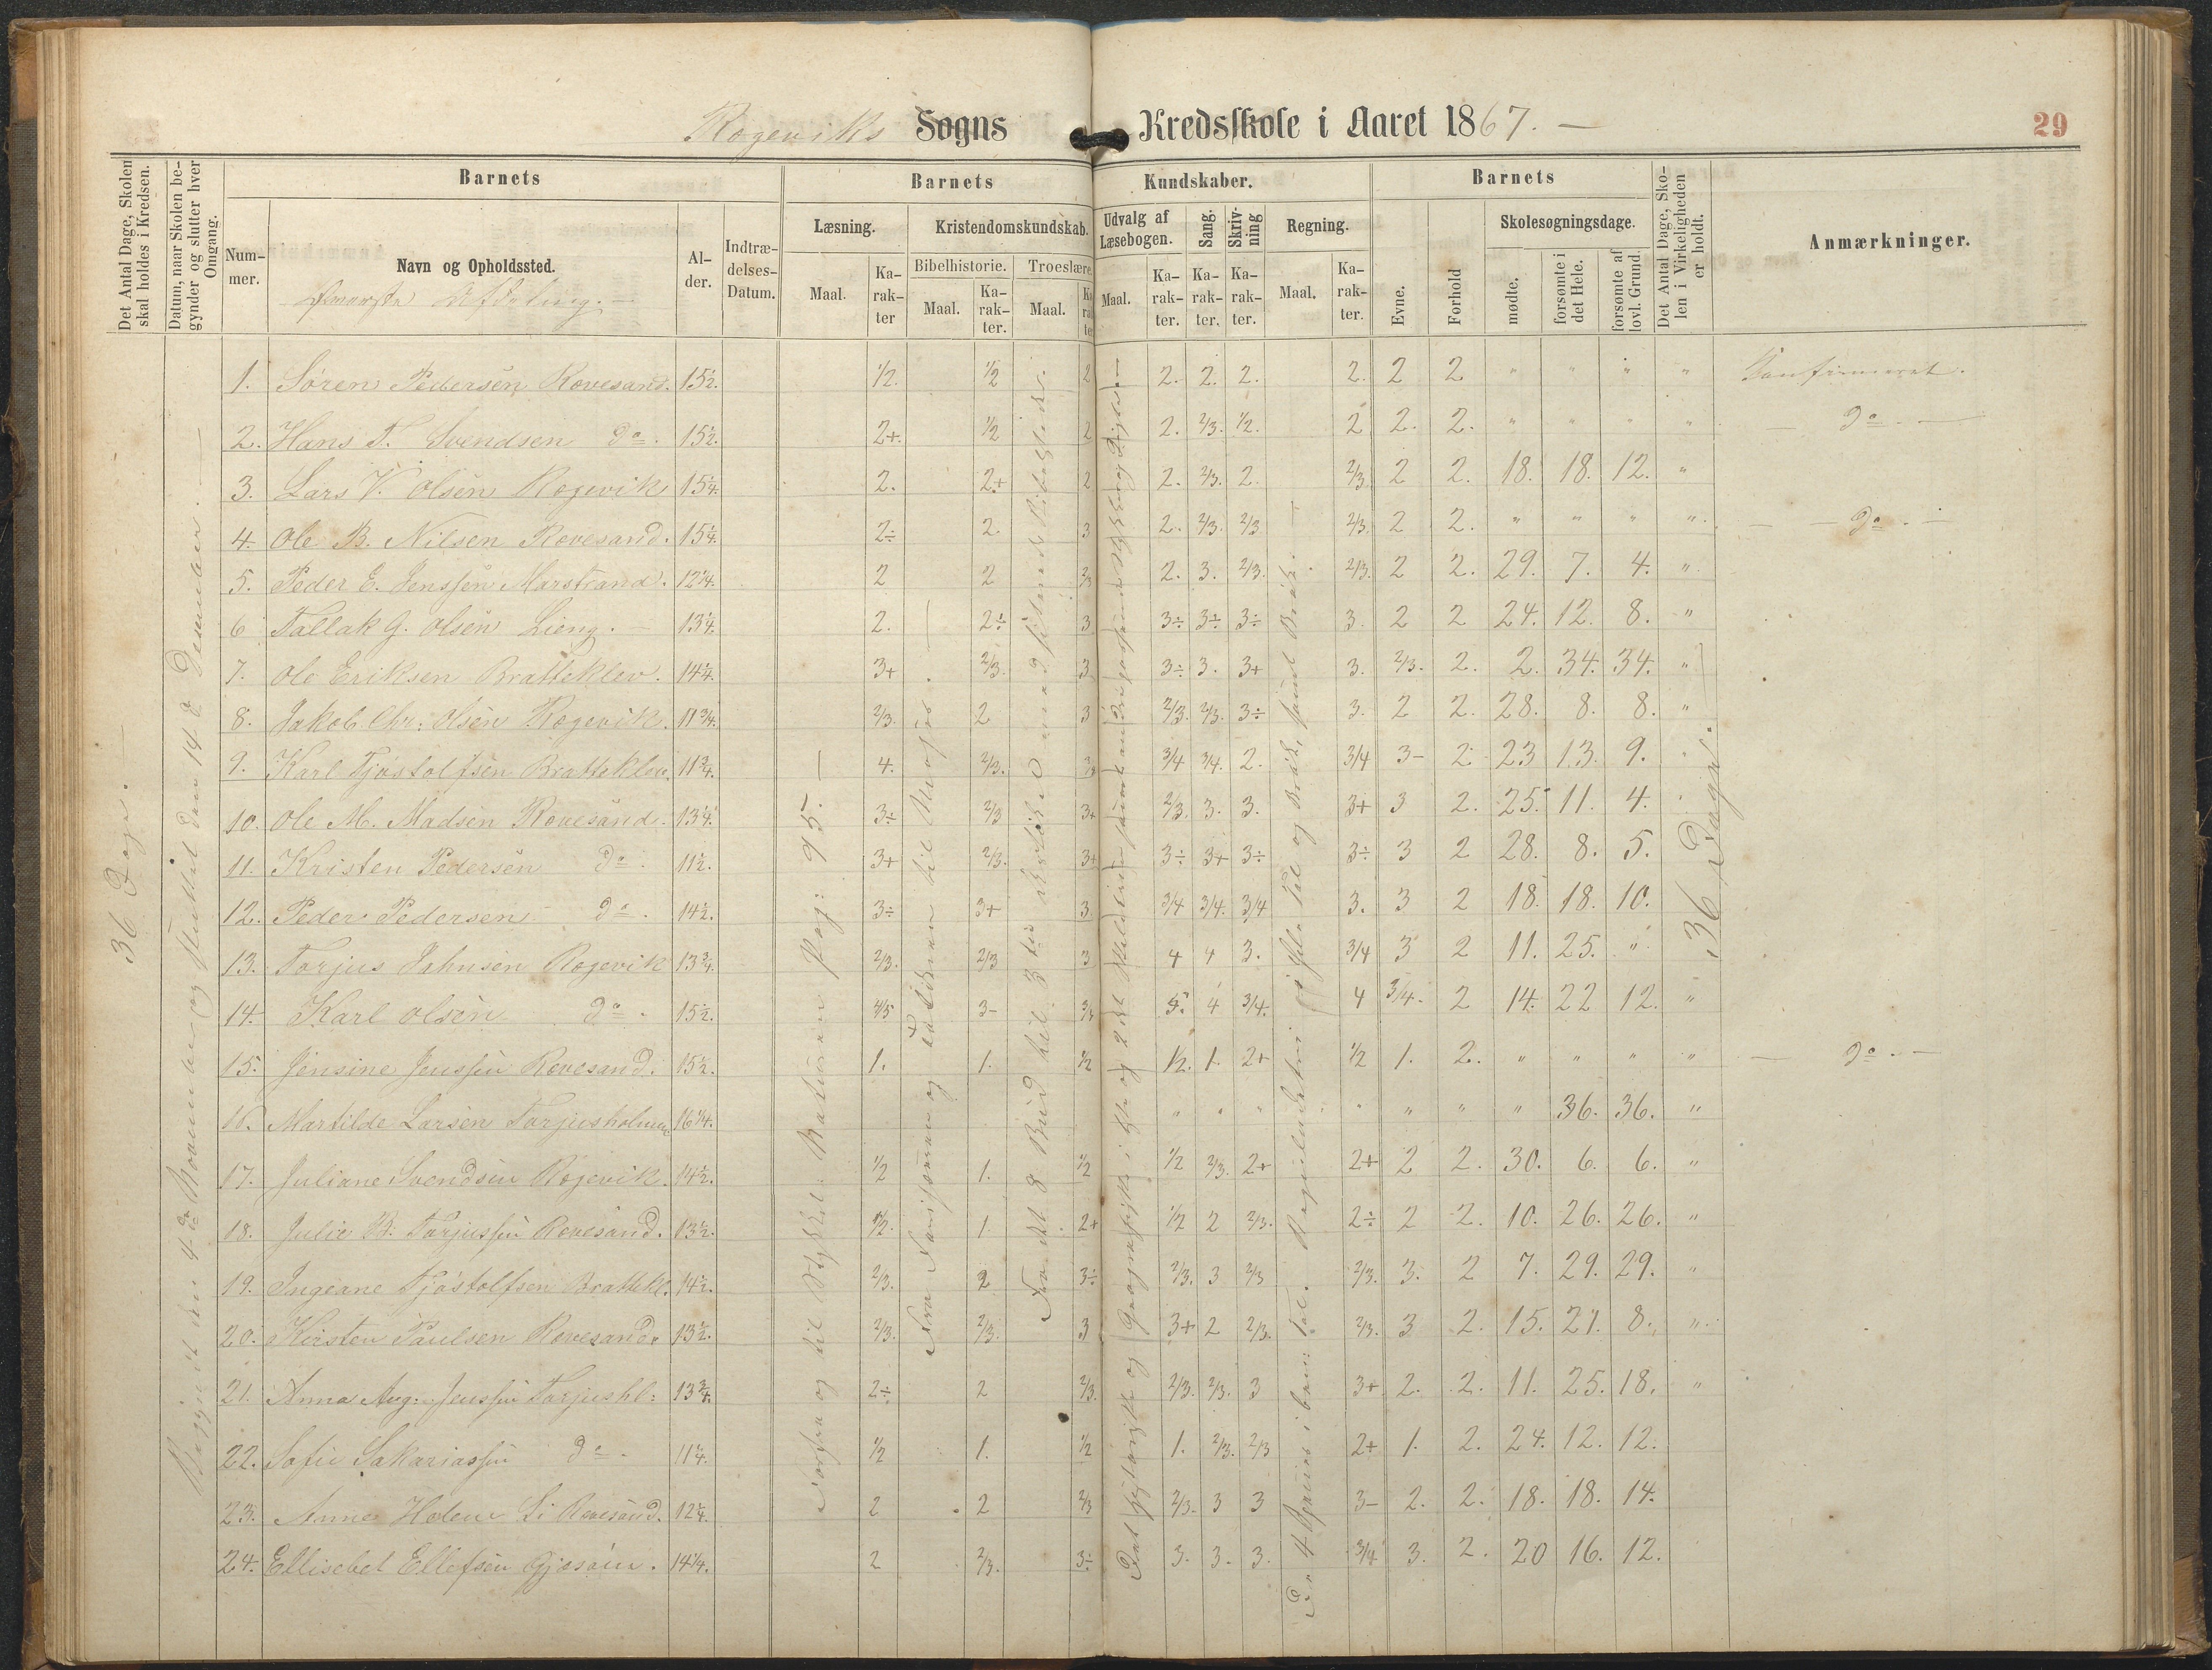 Rogeviks Sogns Kredsskole i Aaret 1867. —
29
Det Antal Dage, Skolen skal holdes i Kredsen.
Datum, naar Skolen begynder og slutter hver Omgang.
Barnets
Nummer.
Navn og Opholdssted.
Alder.
Indtrædelses-Datum.
Barnets Kundskaber.
Læsning.
Maal.
Karakter
Kristendomskundskab.
Bibelhistorie.
Maal.
Karakter.
Troeslære.
Maal.
Karakter
Udvalg af Læsebogen.
Maal.
Karakter.
Sang.
Karakter.
Skrivning
Karakter.
Regning.
Maal.
Karakter.
Barnets
Evne.
Forhold
Skolesøgningsdage.
mødte.
forsømte i det Hele.
forsømte af lovl. Grund.
Det Antal Dage, Skolen i Virkeligheden er holdt.
Anmærkninger.
36 Dage. —
Begyndt den 4de November og sluttet den 14de December. —
Forfra og til Stykket: Naturen Pag: 95. —
36 Dage.
1. Søren Pedersen Rævesand. 15½. 1/2. 1/2 2 2. 2. 2. 2. 2 2 " " " " Konfirmeret.
2. Hans T. Svendsen do. 15½. 2+. 1/2 2 2. 2/3. 1/2. 2 2. 2. " " " " — do. —
3. Lars V. Olsen Rogevik 15¼. 2. 2+ 2 2. 2/3. 2. 2/3 2 2. 18. 18. 12. "
4. Ole B. Nilsen Rævesand. 15¼. 2÷ 2. 3 2. 2/3. 2/3 2/3. 2 2. " " " " — do. —
5. Peder E. Jenssen Marstrand. 12¾. 2 2 2/3 2. 3. 2/3. 2/3. 2 2. 29. 7. 4. "
6 Tallak G. Olsen Lieng. — 13¼. 2. 2÷ 3 3÷ 3÷ 3÷ 3. 2 2 24. 12. 8. "
7. Ole Eriksen Bratteklev. 14¼. 3+ 2/3. 3 3÷ 3. 3+ 3. 2/3. 2. 2. 34. 34. "
8. Jakob Chr: Olsen Rogevik. 11¾. 2/3. 2 3 2/3. 2/3. 3÷ 3. 2 2. 28. 8. 8. "
9. Karl Tjøstolfsen Bratteklev. 11¾. 4. 2/3. 3/4 3/4. 2. 3/4 3- 2 23 13. 9.
10. Ole M. Madsen Rævesand. 13¼. 3÷ 2/3 3+ 2/3. 3. 3. 3+ 3 2. 25. 11. 4.
11. Kristen Pedersen do. 11½. 3+ 2/3. 3+ 3÷ 3+ 3÷ 3÷ 3 2 28. 8. 5.
12. Peder Pedersen do. 14½. 3÷ 3+ 3 3/4 3/4. 3/4 3. 3 2 18. 18. 10.
13. Torjus Johnsen Rogevik 13¾. 2/3. 2/3 3 4 4 3. 3/4 3 2 11. 25. "
14. Karl Olsen do. 15½. 4/5 3- 5. 4 3/4. 4 3/4. 2 14. 22 12. "
15. Jensine Jenssen Rævesand. 15½. 1. 1. 1/2 1/2. 1. 2+ 1/2 1. 2. " " " " — do. —
16. Martilde Larsen Torjusholmen 16¼. " " " " " " " 36. 36. "
17. Juliane Svendsen Rogevik. 14½. 1/2 1. 1/2 1/2 2/3. 2+ 2+ 2 2. 30. 6. 6. "
18. Julie B. Torjussen Rævesand. 13½. 1/2. 1. 2+ 1/2 2 2/3. 2÷ 2 2. 10. 26. 26. "
19. Ingeane Tjøstolfsen Brattekl. 14½. 2/3. 2 3÷ 2/3. 3 2/3 2/3. 3. 2 7. 29. 29. "
20. Kirsten Paulsen Rævesand. 13½. 2/3. 2/3. 3 3+ 2 2/3. 2/3. 3 2. 15. 21. 8. "
21. Anna Aug: Jenssen Torjushl: 13¾. 2÷ 2 2/3. 2/3. 2/3. 3 3+ 2. 2. 11. 25. 18. "
22. Sofie Sakariassen do. 11¼. 1/2 1. 1/2 1. 2/3. 2/3 2+ 1. 2. 24. 12. 12.
23. Anne Helene Li Rævesand. 12¼. 2 2 2/3 2/3. 3 3 3- 2. 2. 18. 18. 14.
24. Ellisebet Ellefsen Gjesøen. 14¼. 2 2/3. 3÷ 3. 3. 3. 3/4 3. 2. 20 16. 12.